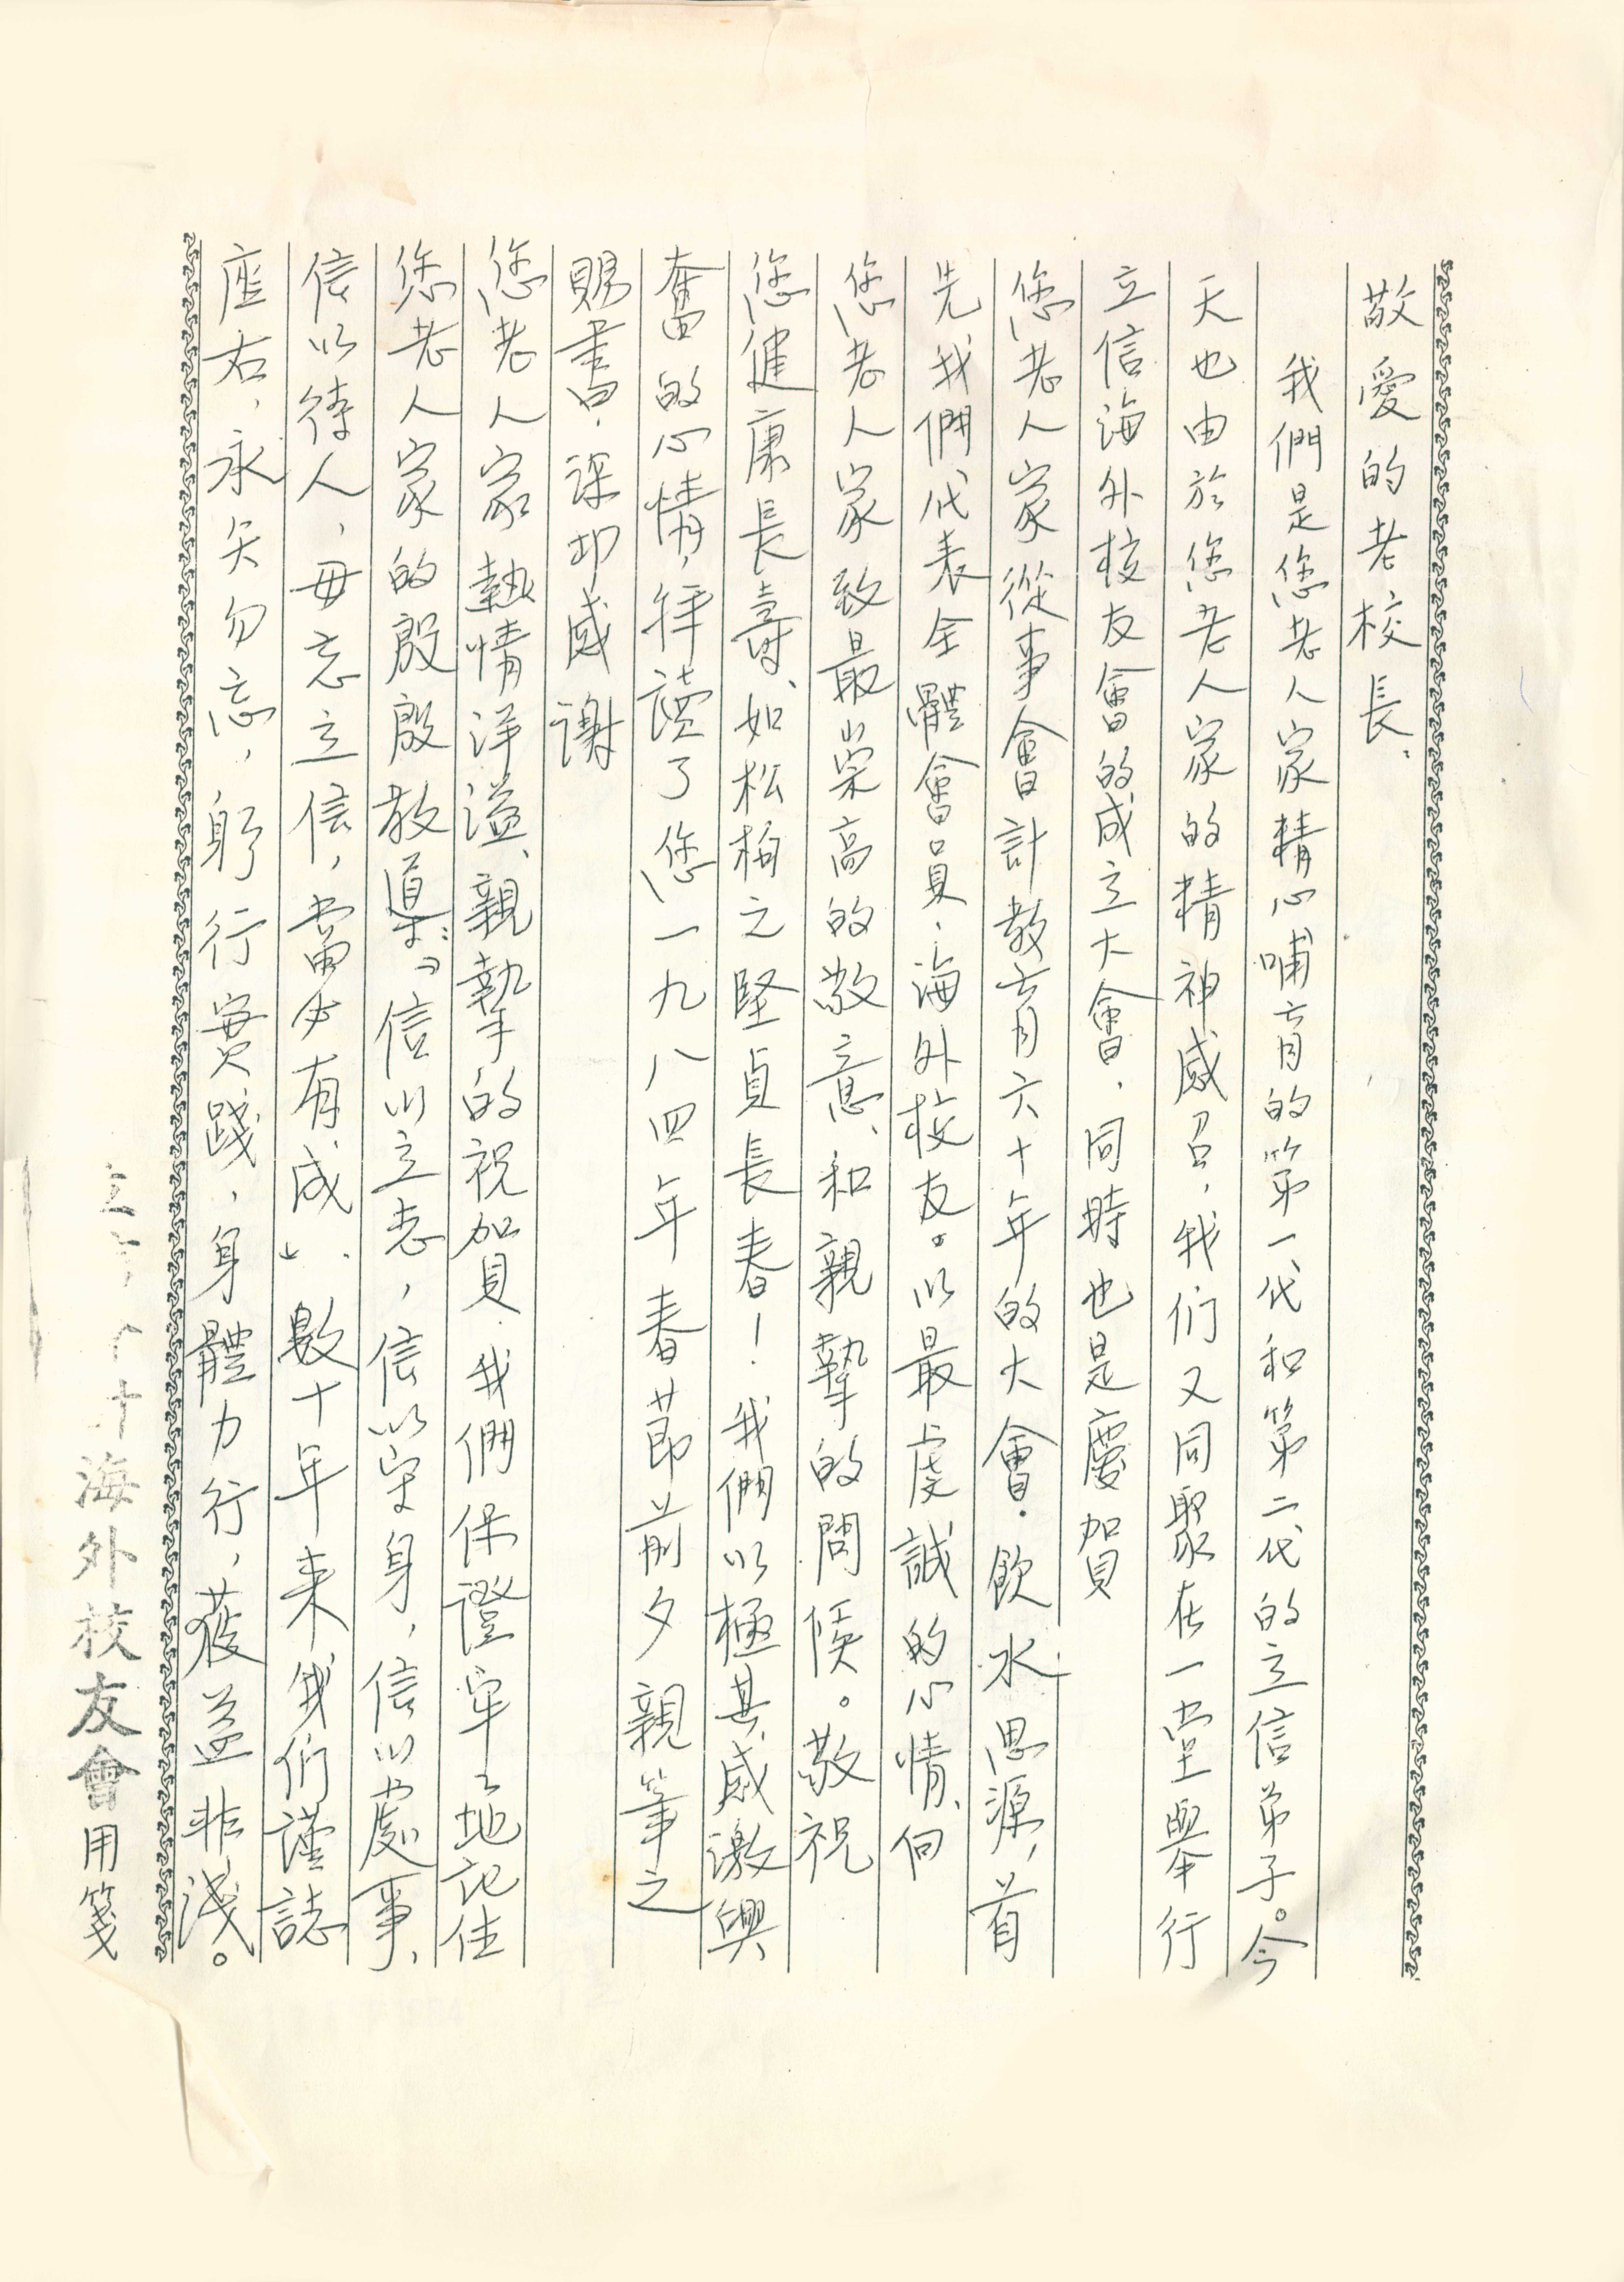 敬愛的老校長、
我們是您老人家精心哺育的第一代和第二代的立信弟子。今
天也由於您老人家的精神感召，我们又同聚在一堂舉行
立信海外校友會的成立大會，同時也是慶加貝
您老人家從事會計教育六十年的大會。飲水思源，首
先我們代表全體會員、海外校友。以最虔誠的心情、向
您老人家致最崇高的敬意、和親摯的問候。敬祝
您健康長壽、如松柏之堅貞長春！我們以極其感激興
奮的心情，拜讀了您一九八四年春節前夕親筆之
賜書，深叩感謝
您老人家熱情洋溢、親摯的祝加貝、我們保證牢々地記住
您老人家的殷殷教導：「信以立志，信以守身，信以處事、
信以待人，毋忘立信，當必有成」、數十年来我们謹誌
座右，永矢勿忘，躬行實踐，身體力行，獲益非淺。
立海外校友會用箋